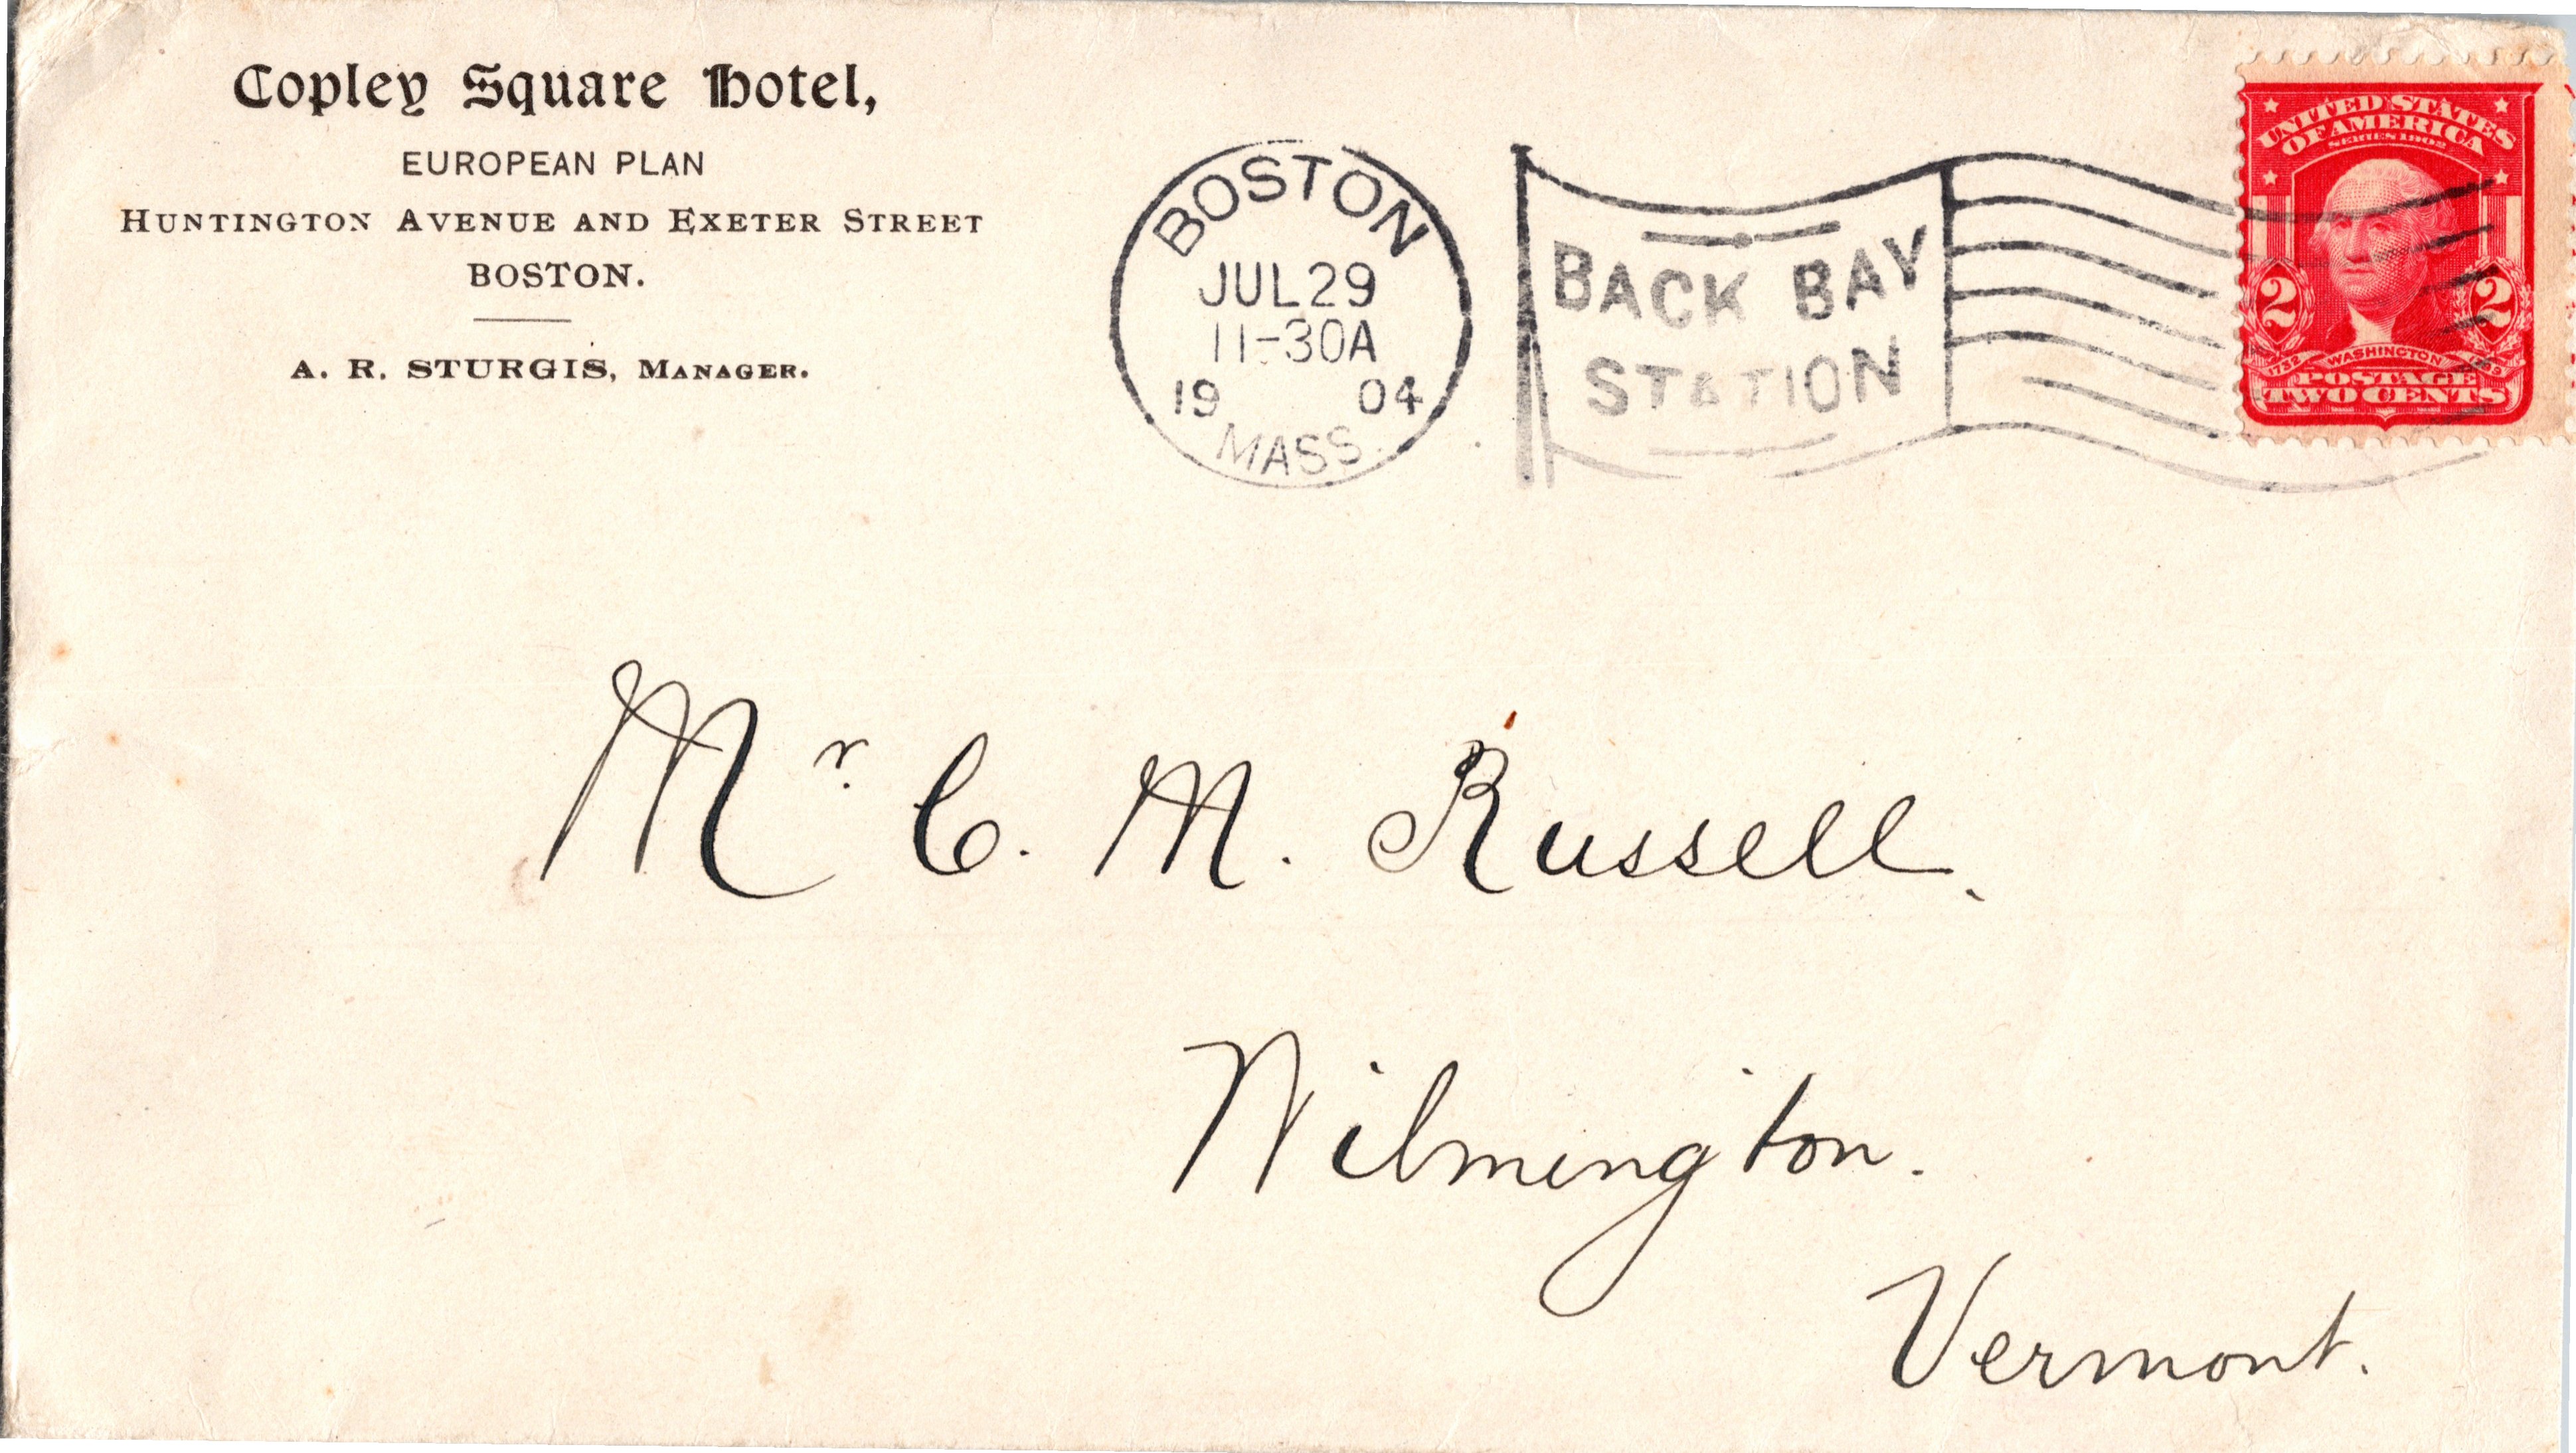 Copley Square Hotel,
EUROPEAN PLAN
HUNTINGTON AVENUE AND EXETER STREET
BOSTON.
A. R. STURGIS, MANAGER.
BOSTON
JUL 29
11-30A
19 04
MASS.
BACK BAY
STATION
UNITED STATES
OF AMERICA
SERIES 1902
2 2
1732 WASHINGTON 1799
POSTAGE
TWO CENTS
Mr. C. M. Russell.
Wilmington.
Vermont.